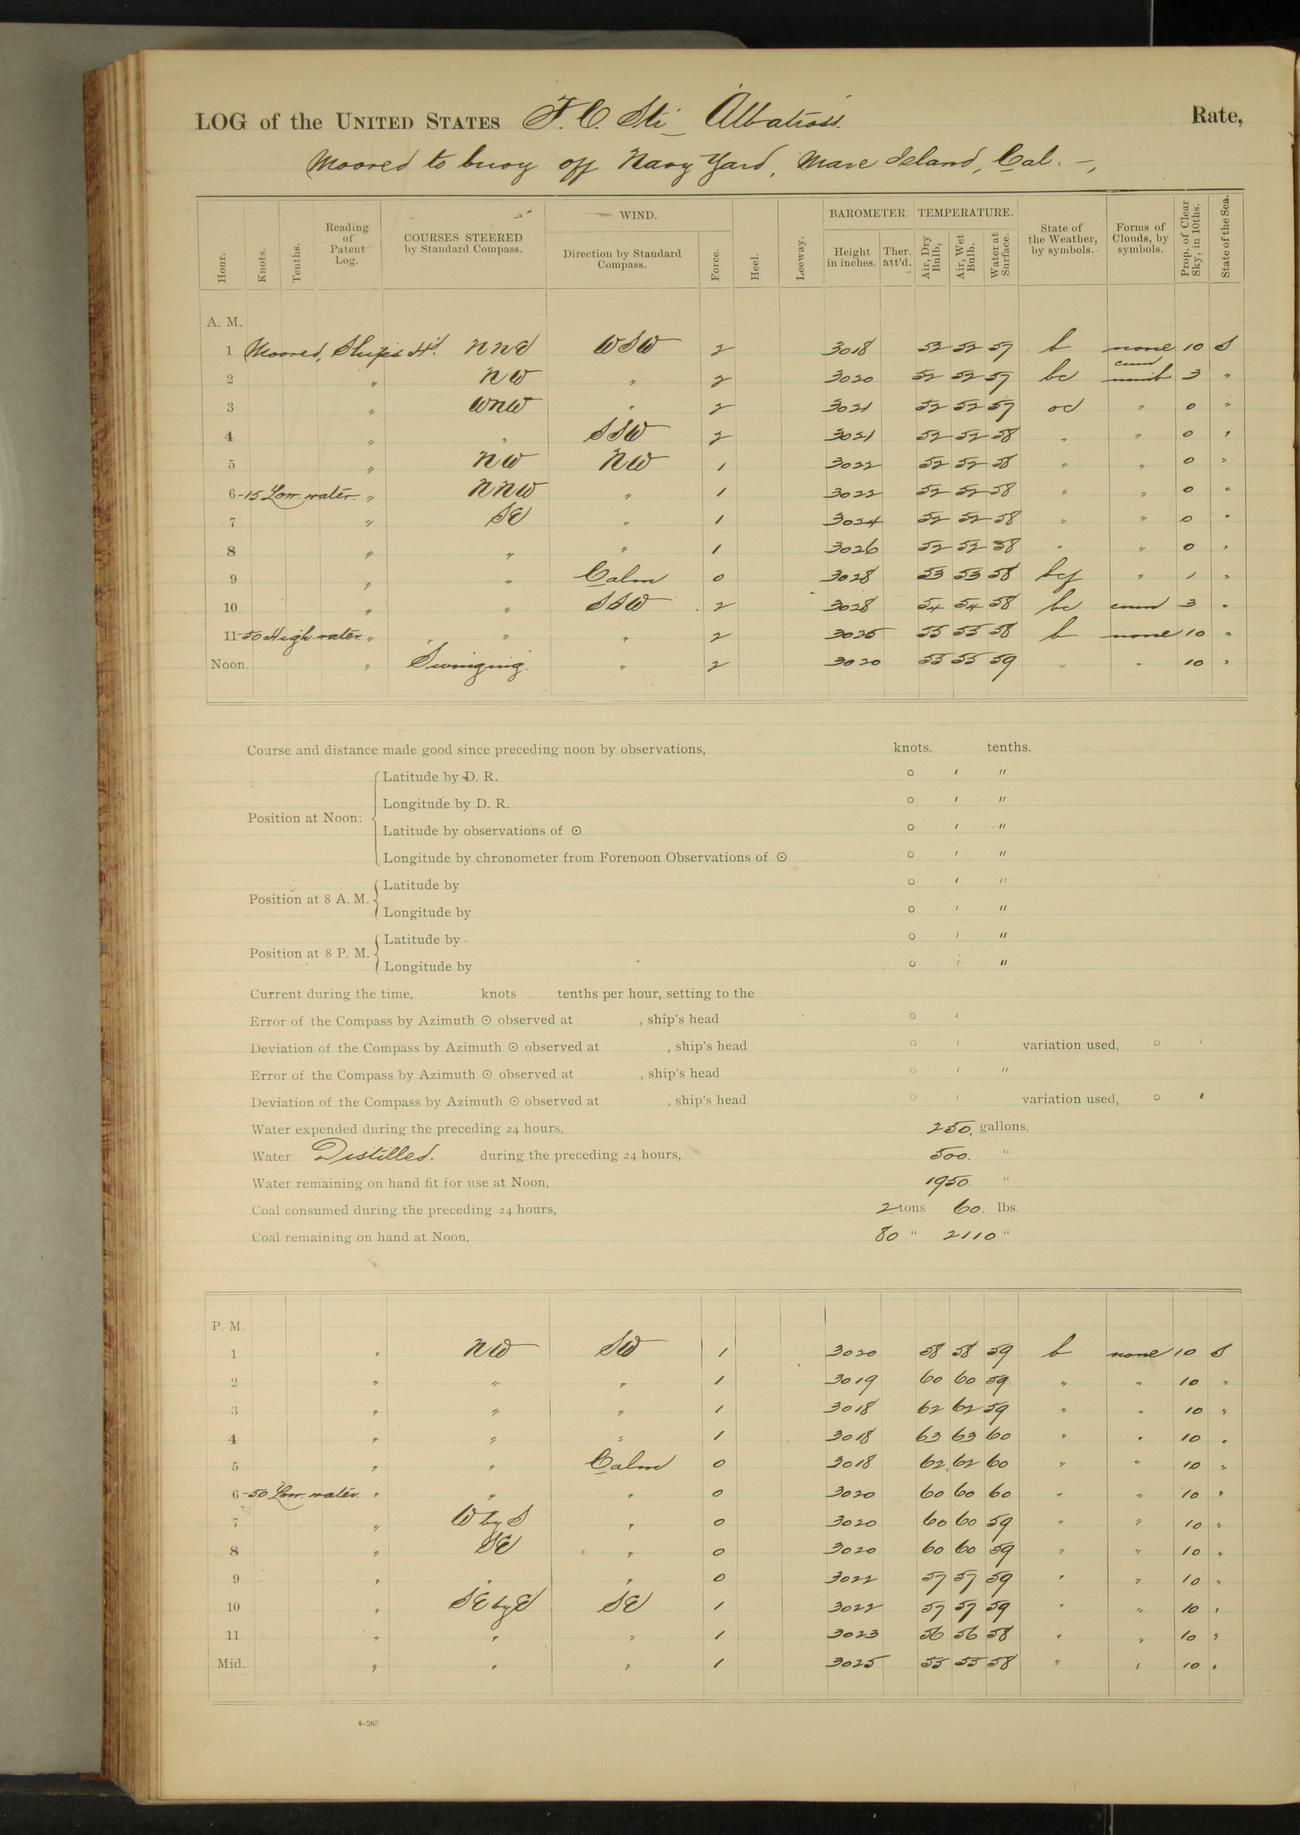 LOG of the UNITED STATES F. C. Str. Albatross Rate,
Moored to buoy off Navy Yard, Mare Island, Cal. —,
Hour. Knots. Tenths. Reading of Patent Log. COURSES STEERED by Standard Compass. WIND. Direction by Standard Compass. Force. Heel. Leeway. BAROMETER. Height in inches. Ther. att'd. TEMPERATURE. Air, Dry Bulb. Air, Wet Bulb. Water at Surface. State of the Weather, by symbols. Forms of Clouds, by symbols. Prop. of Clear Sky, in 10ths. State of the Sea.
A. M.
1 Moored, Ships H'd. NNE WSW 2 3018 52 52 57 b none 10 S
2 " NW " 2 3020 52 52 57 bc cum nimb 3 "
3 " WNW " 2 3021 52 52 57 od " 0 "
4 " " SSW 2 3021 52 52 58 " " 0 "
5 " NW NW 1 3022 52 52 58 " " 0 "
6-15 Low water. " NNW " 1 3022 52 52 58 " " 0 "
7 " SE " 1 3024 52 52 58 " " 0 "
8 " " " 1 3026 52 52 58 " " 0 "
9 " " Calm 0 3028 53 53 58 bcf " 1 "
10 " " SSW 2 3028 54 54 58 bc cum 3 "
11-50 High water. " " " 2 3025 55 55 58 b none 10 "
Noon. " Swinging. " 2 3020 55 55 59 " " 10 "
Course and distance made good since preceding noon by observations, knots. tenths.
Position at Noon: Latitude by D. R. ° ' "
Longitude by D. R. ° ' "
Latitude by observations of ☉ ° ' "
Longitude by chronometer from Forenoon Observations of ☉ ° ' "
Position at 8 A. M. Latitude by ° ' "
Longitude by ° ' "
Position at 8 P. M. Latitude by ° ' "
Longitude by ° ' "
Current during the time, knots tenths per hour, setting to the
Error of the Compass by Azimuth ☉ observed at , ship's head ° '
Deviation of the Compass by Azimuth ☉ observed at , ship's head ° ' variation used, ° '
Error of the Compass by Azimuth ☉ observed at , ship's head ° ' "
Deviation of the Compass by Azimuth ☉ observed at , ship's head ° ' variation used, ° '
Water expended during the preceding 24 hours, 250. gallons.
Water Distilled. during the preceding 24 hours, 500. "
Water remaining on hand fit for use at Noon, 1950 "
Coal consumed during the preceding 24 hours, 2 tons 60. lbs.
Coal remaining on hand at Noon, 80 " 2110 "
P. M.
1 " NW SW 1 3020 58 58 59 b none 10 S
2 " " " 1 3019 60 60 59 " " 10 "
3 " " " 1 3018 62 62 59 " " 10 "
4 " " " 1 3018 63 63 60 " " 10 "
5 " " Calm 0 3018 62 62 60 " " 10 "
6-50 Low water. " " " 0 3020 60 60 60 " " 10 "
7 " W by S " 0 3020 60 60 59 " " 10 "
8 " SE " 0 3020 60 60 59 " " 10 "
9 " " " 0 3022 57 57 59 " " 10 "
10 " SE by E SE 1 3022 57 57 59 " " 10 "
11 " " " 1 3023 56 56 58 " " 10 "
Mid. " " " 1 3025 55 55 58 " " 10 "
4-265